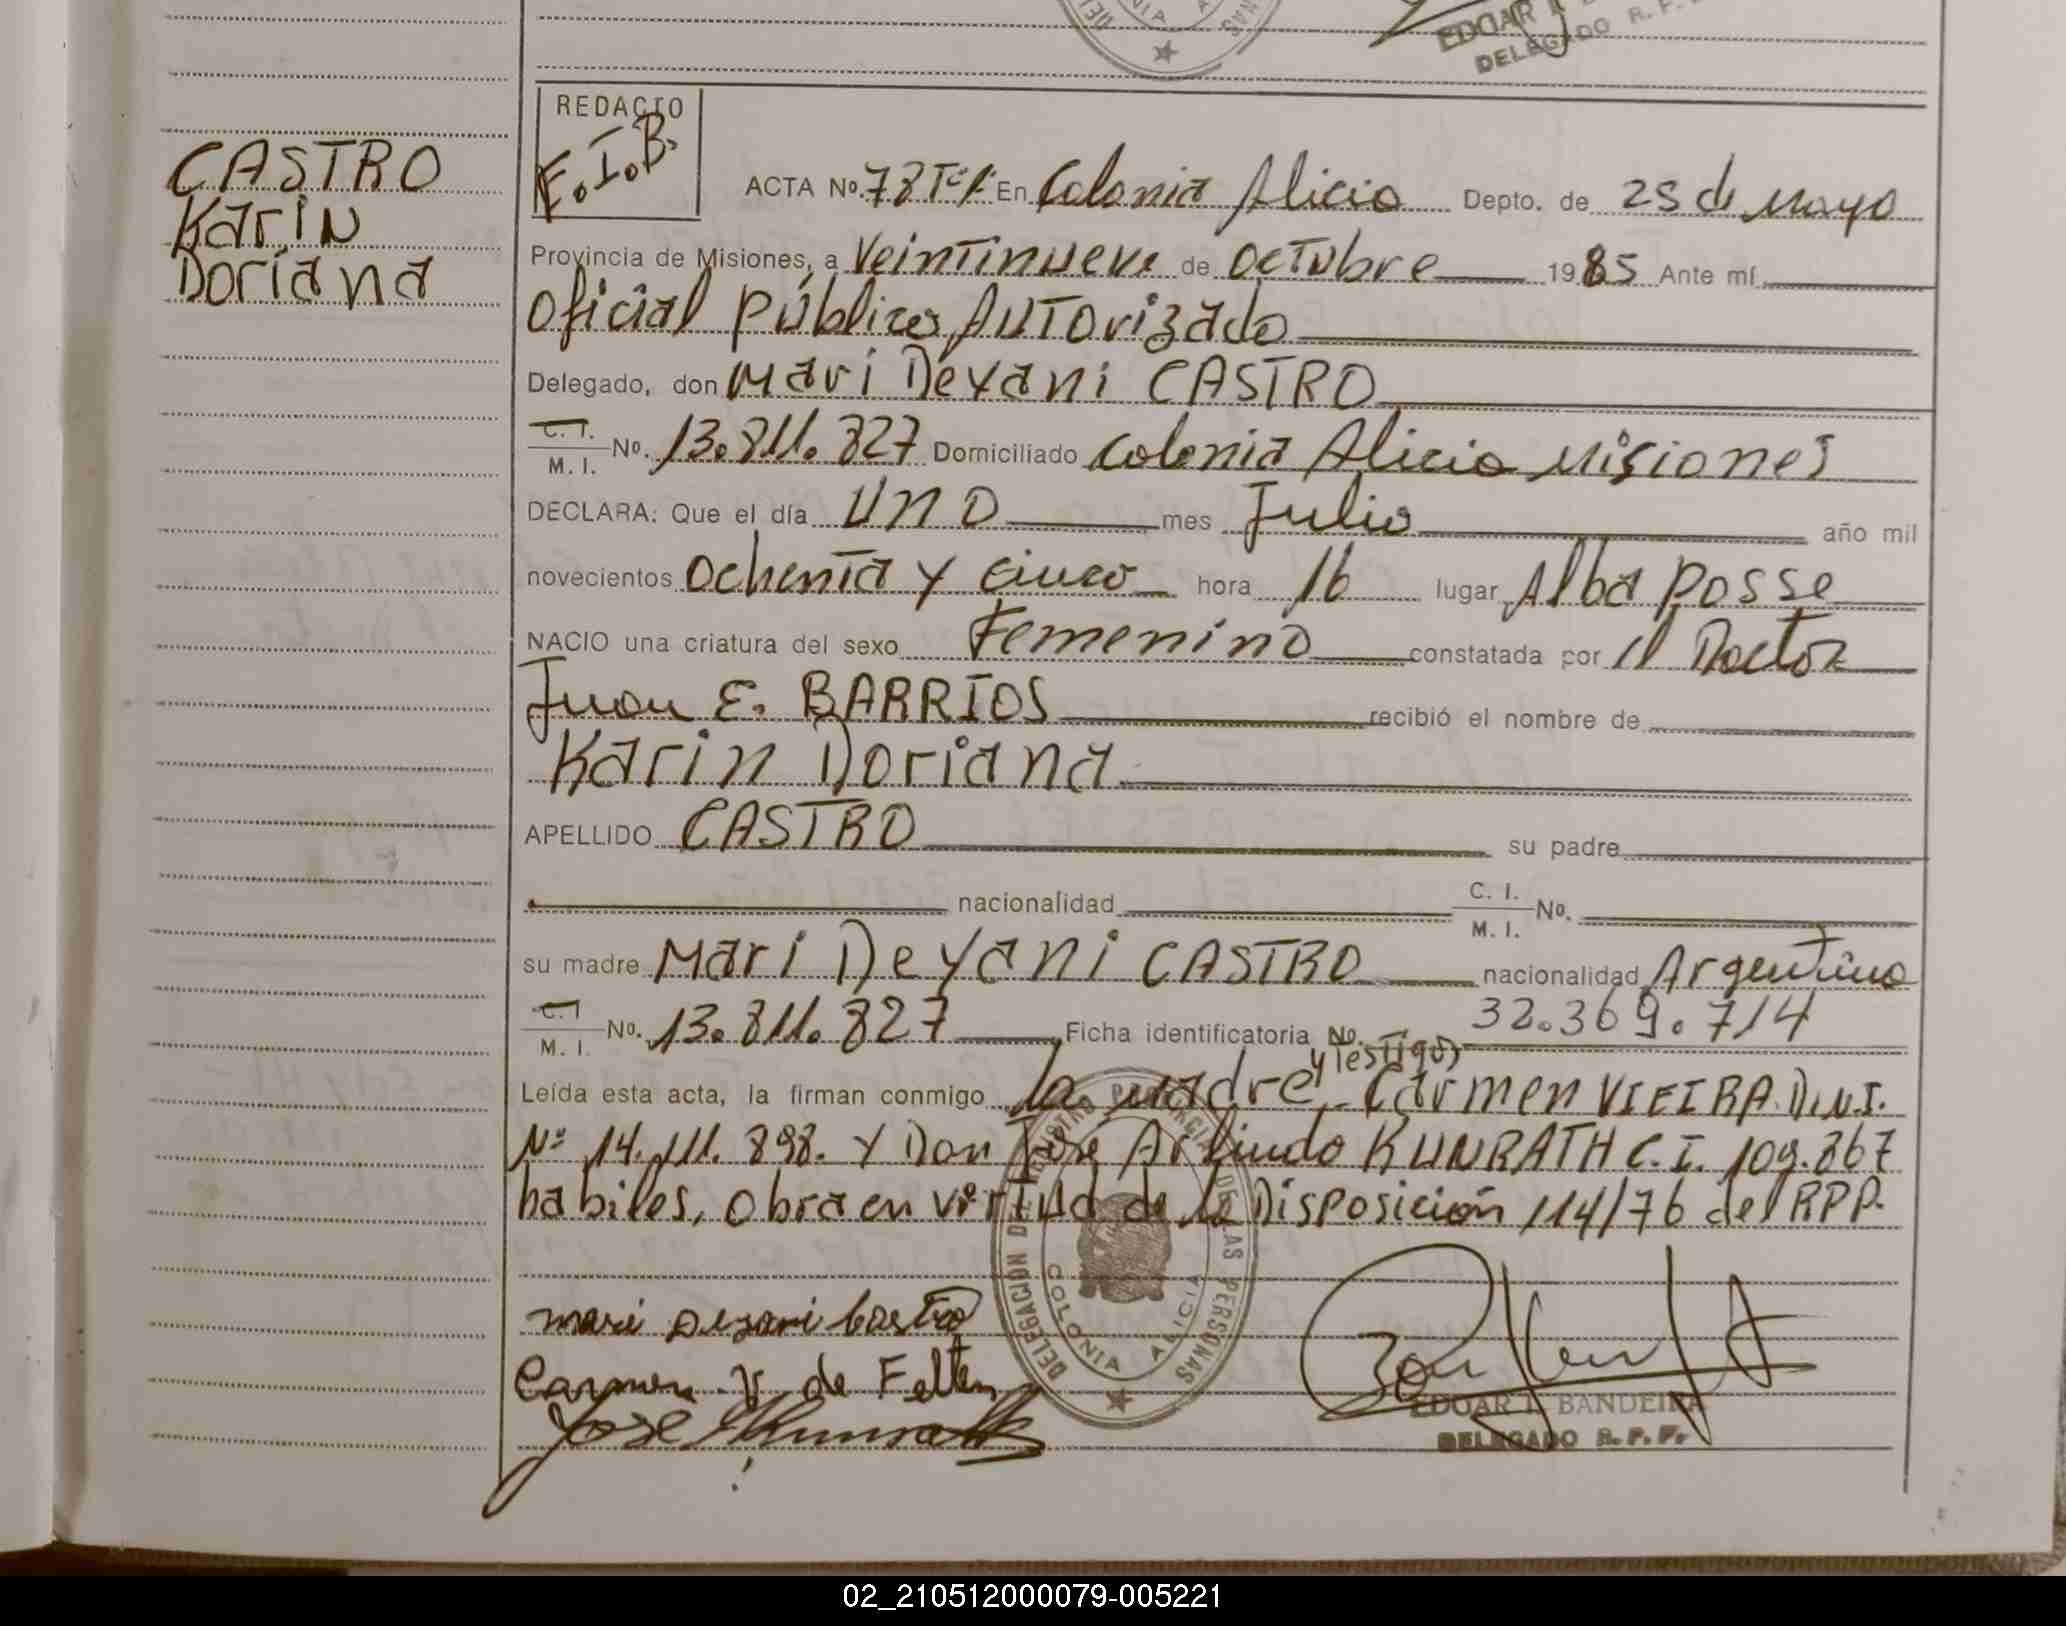 EDGAR I.
DELEGADO R. P.
CASTRO
Karin
Doriana
REDACTO
E.I.B.
ACTA Nº. 78 Tº 1º En Colonia Alicia Depto. de 25 de Mayo
Provincia de Misiones, a Veintinueve de Octubre 1985 Ante mí
Oficial Público Autorizado
Delegado, don Mari Deyani CASTRO
C. I.
M. I. Nº. 13.811.827 Domiciliado Colonia Alicia Misiones
DECLARA: Que el día UNO mes Julio año mil
novecientos Ochenta y cinco hora 16 lugar Alba Posse
NACIO una criatura del sexo Femenino constatada por el Doctor
Juan E. BARRIOS recibió el nombre de
Karin Doriana
APELLIDO CASTRO su padre
nacionalidad C. I.
M. I. Nº.
su madre Mari Deyani CASTRO nacionalidad Argentina
C. I.
M. I. Nº. 13.811.827 Ficha identificatoria Nº. 32.369.714
y testigos
Leída esta acta, la firman conmigo la madre, Carmen VIEIRA D.N.I.
Nº 14.111.898. Y Don José Arlindo KUNRATH C.I. 109.867
habiles, obra en virtud de la Disposición 114/76 del RPP.
DELEGACIÓN DEL REGISTRO PROVINCIAL DE LAS PERSONAS
COLONIA ALICIA
mari Deyani Castro
Carmen V. de Felten
José A Kunrath
EDGAR I. BANDEIRA
DELEGADO R. P. P.
02_210512000079-005221